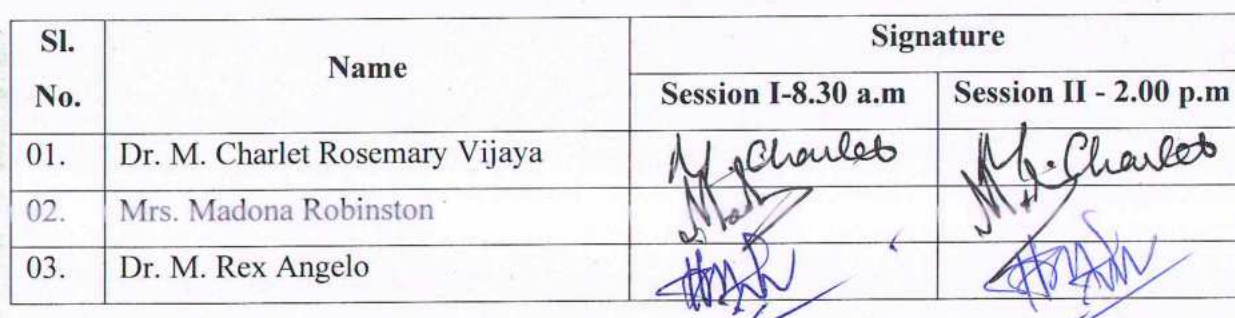 Sl. No. Name Signature
Session I-8.30 a.m Session II - 2.00 p.m
01. Dr. M. Charlet Rosemary Vijaya M. Charlet M. Charlet
02. Mrs. Madona Robinston
03. Dr. M. Rex Angelo